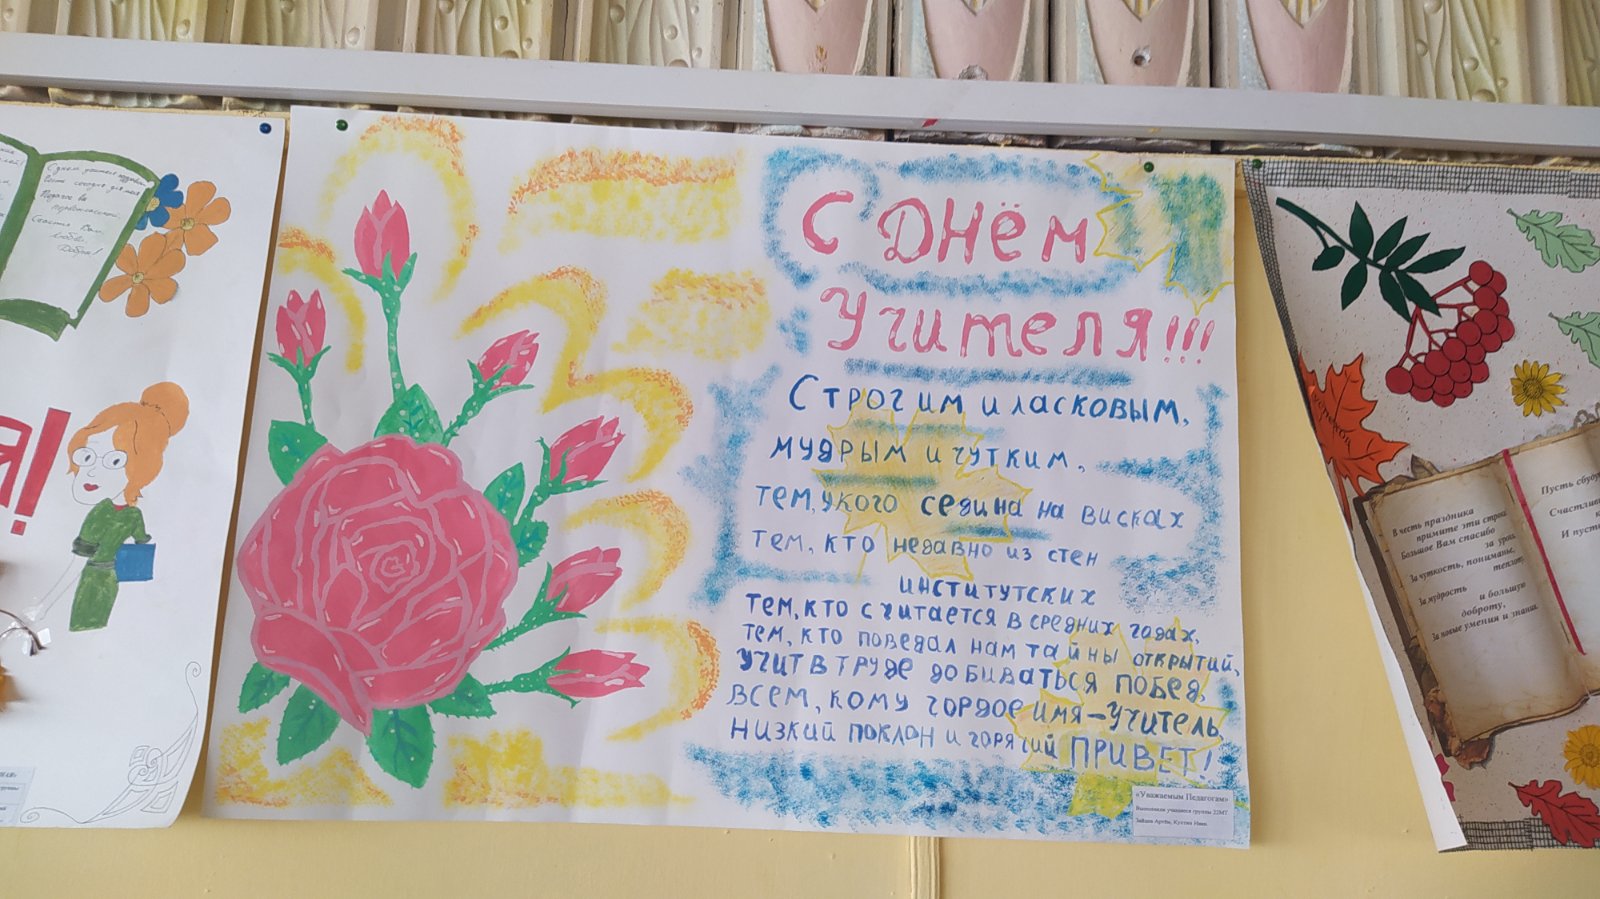 С днем учителя
Я!
С ДНЁМ
УЧИТЕЛЯ!!!
СТРОГИМ И ЛАСКОВЫМ,
МУДРЫМ И ЧУТКИМ,
ТЕМ, У КОГО СЕДИНА НА ВИСКАХ
ТЕМ, КТО НЕДАВНО ИЗ СТЕН
ИНСТИТУТСКИХ
ТЕМ, КТО СЧИТАЕТСЯ В СРЕДНИХ ГОДАХ,
ТЕМ, КТО ПОВЕДАЛ НАМ ТАЙНЫ ОТКРЫТИЙ,
УЧИТ В ТРУДЕ ДОБИВАТЬСЯ ПОБЕД,
ВСЕМ, КОМУ ГОРДОЕ ИМЯ-УЧИТЕЛЬ,
НИЗКИЙ ПОКЛОН И ГОРЯЧИЙ ПРИВЕТ!
«Уважаемым Педагогам»
Выполнили учащиеся группы 22МТ
Зайцев Артём,
В честь праздника
примите эти строки
Большое Вам спасибо
за урок
За чуткость, пониманье,
теплоту,
За мудрость
и большую
доброту,
За новые умения и знания.
Пусть
Счастли
И пусть